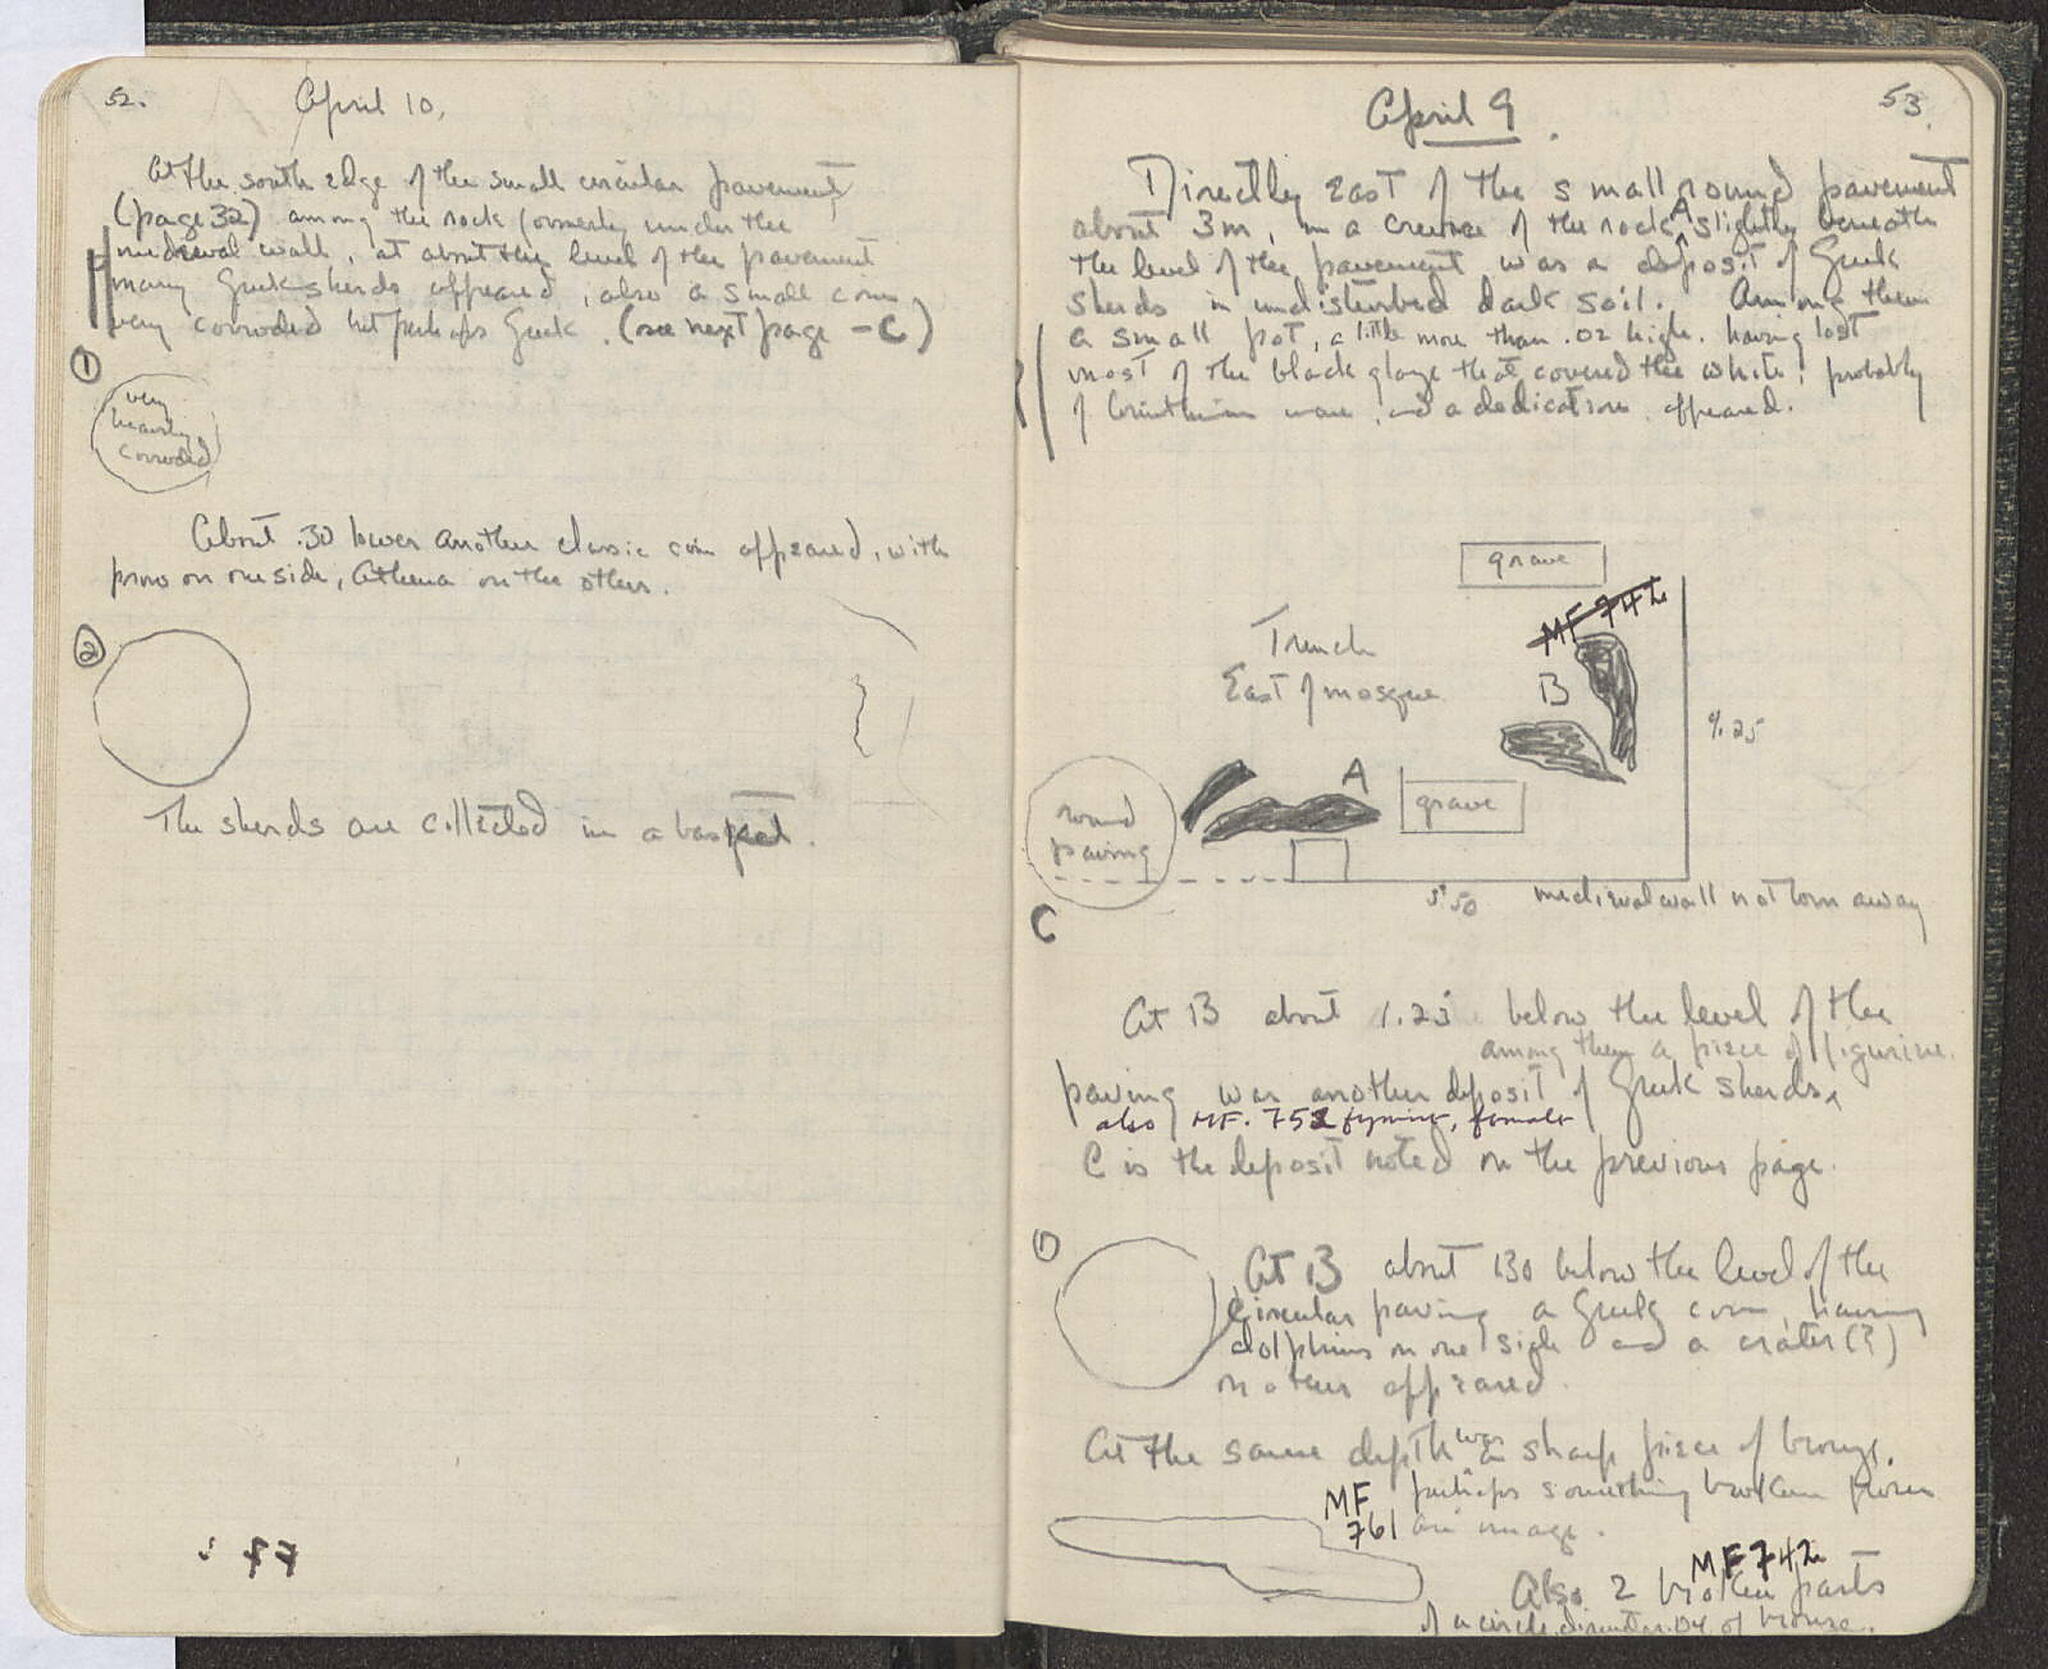 52.
April 10,
At the south edge of the small circular pavement,
(page 32) among the rock formerly under the
medieval wall, at about the level of the pavement
many Greek sherds appeared, also a small coin,
very corroded but perhaps Greek. (see next page - C)
1
very
heavily
corroded
About .30 lower another classic coin appeared, with
prow on one side, Athena on the other.
2
The sherds are collected in a basket.
53.
April 9.
Directly East of the small round pavement
about 3m, in a crevice of the rock A slightly beneath
the level of the pavement was a deposit of Greek
sherds in undisturbed dark soil. Among them
a small pot, a little more than .02 high. having lost
most of the black glaze that covered the white; probably
of Corinthian ware, and a dedication, appeared.
grave
MF 742
Trench
East of mosque
B
A
grave
round
paving
5.50
medieval wall not torn away
C
At B about 1.25 below the level of the
among them a piece of figurine.
paving was another deposit of Greek sherds,
also MF. 752 figurine, female
C is the deposit noted on the previous page.
1
At B about 1.30 below the level of the
circular paving a Greek coin, having
dolphins on one side and a crater (?)
on other appeared.
At the same depth was a sharp piece of bronze,
MF
761
perhaps something broken from
an image.
MF 742
Also 2 broken parts
of a circle, diameter .04, of bronze.